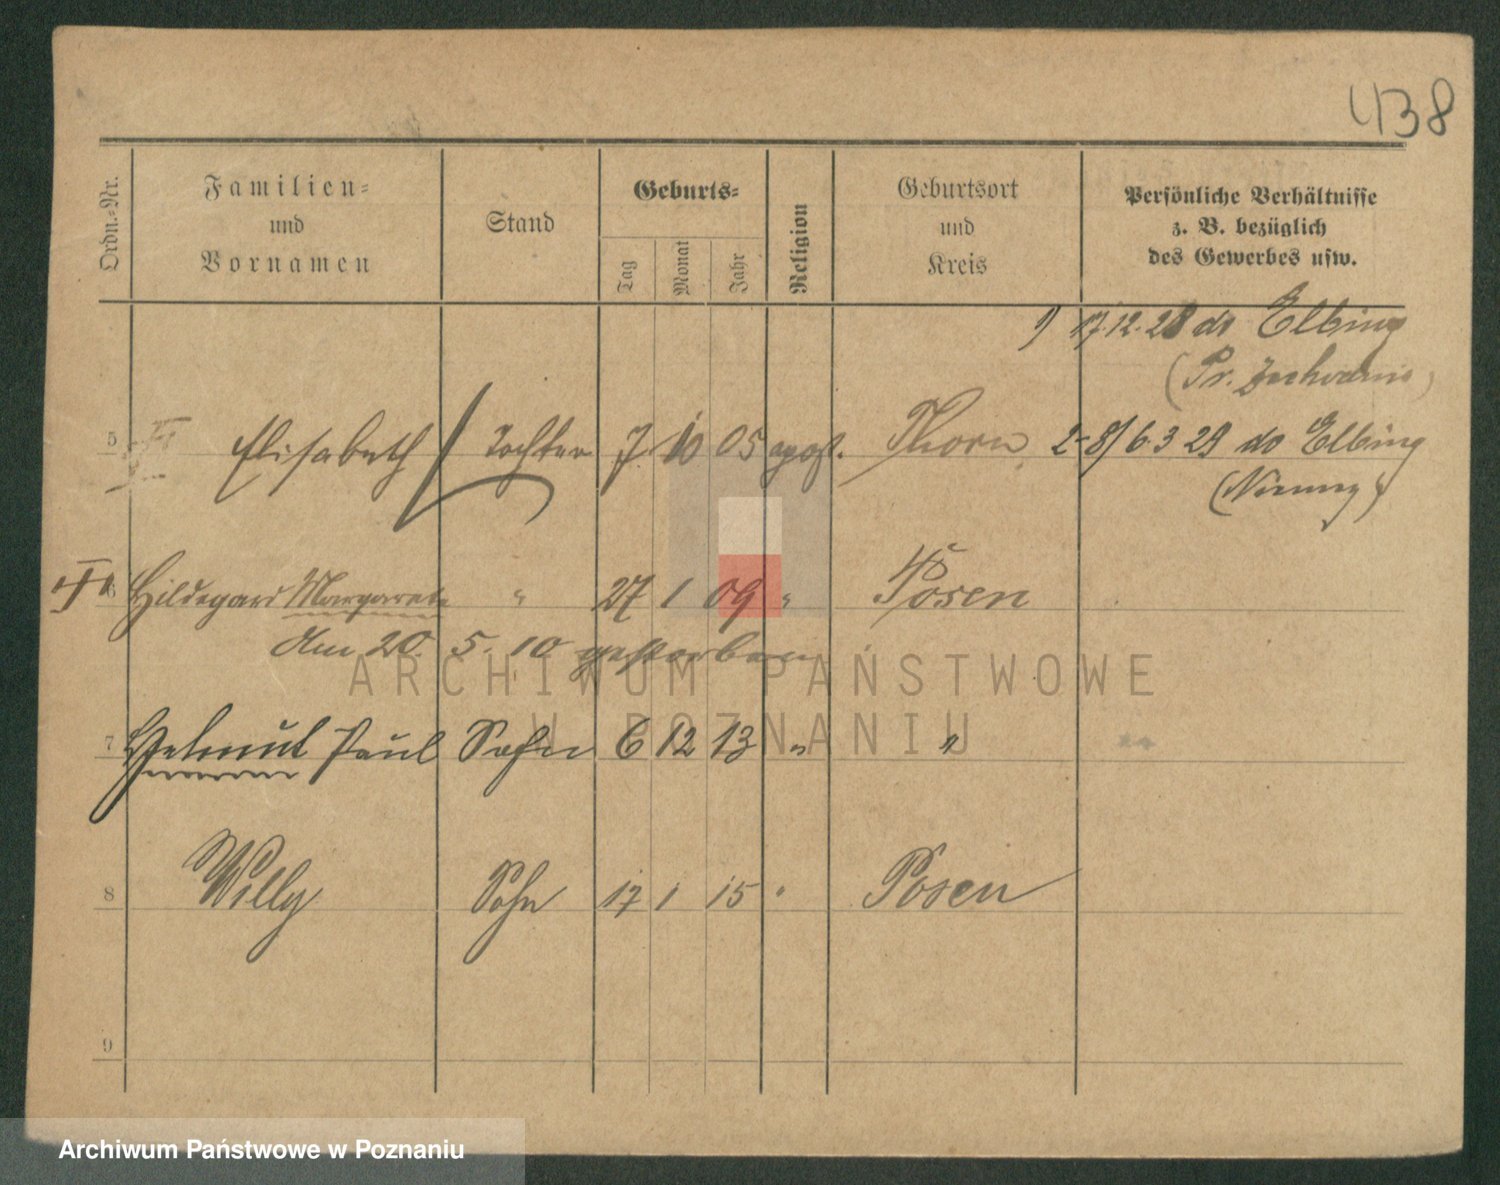 438
Ordn.-Nr.
Familien-
und
Vornamen
Stand
Geburts-
Tag
Monat
Jahr
Religion
Geburtsort
und
Kreis
Persönliche Verhältnisse
z. B. bezüglich
des Gewerbes usw.
1) 17.12.28 do Elbing
(Pr.
5 Elisabeth Tochter 7 10 05 apost. Thorn 2-8/ 6.3 29 do Elbing
6 Hildegard Margarete " 27 1 09 " Posen
Am 20. 5. 10 gestorben
7 Helmut Paul Sohn 6 12 13 " "
8 Willy Sohn 17 1 15 " Posen
9
ARCHIWUM PAŃSTWOWE
W POZNANIU
Archiwum Państwowe w Poznaniu